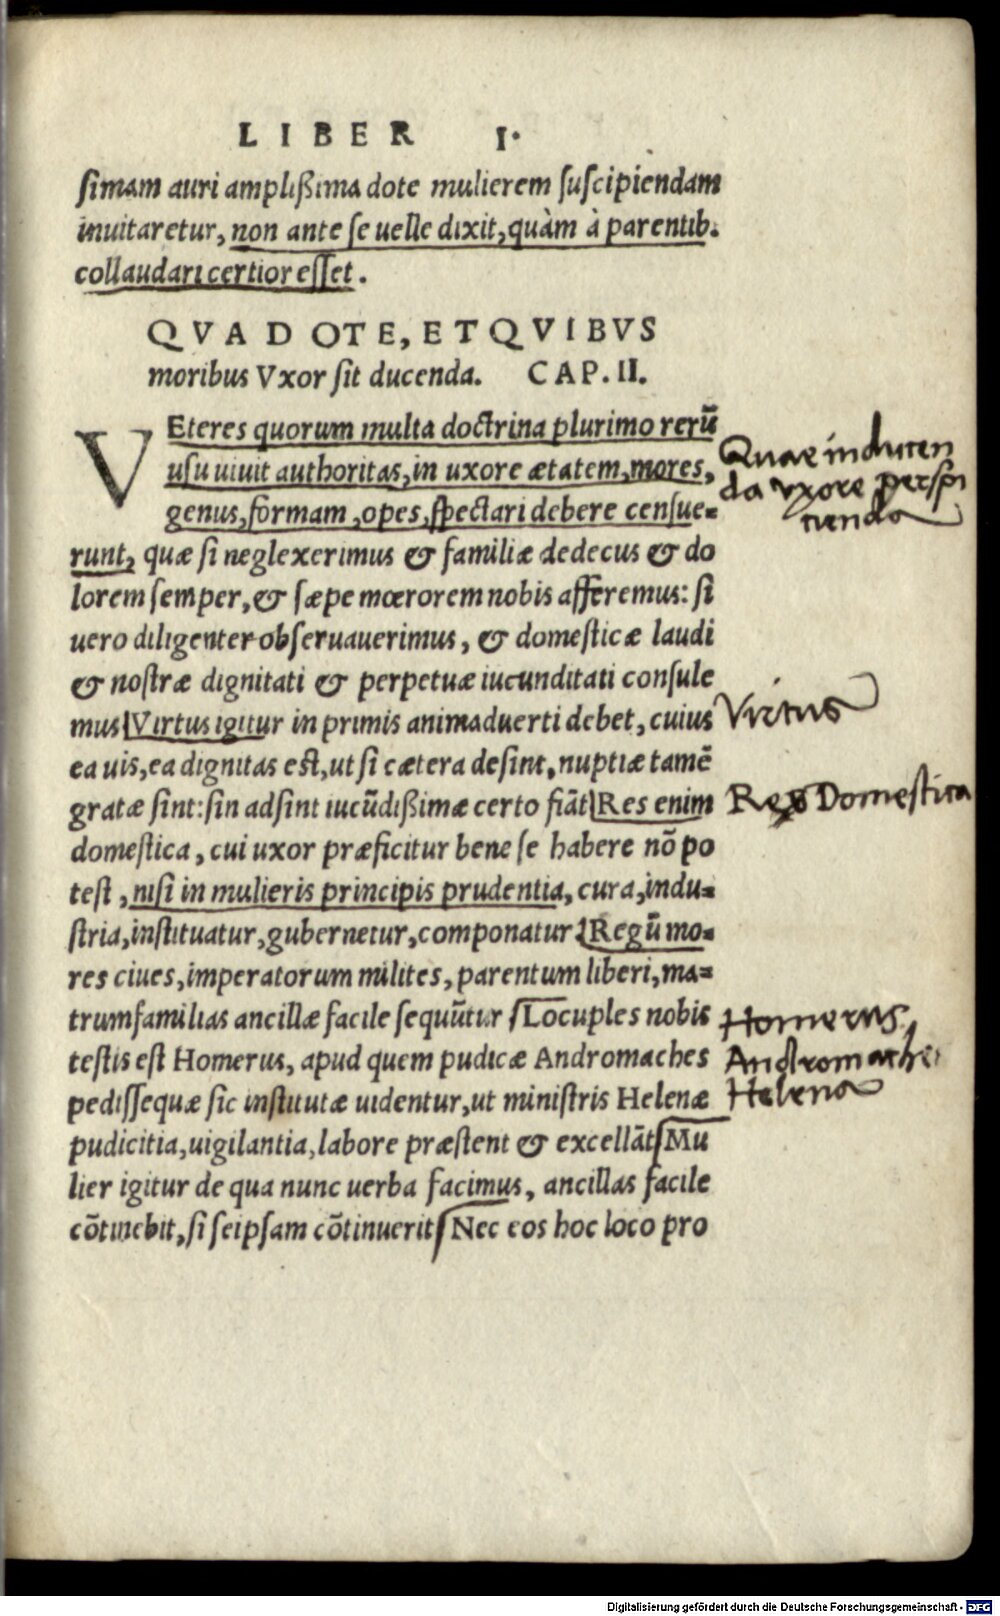 LIBER I.
simam auri amplißima dote mulierem suscipiendam
inuitaretur, non ante se uelle dixit, quàm à parentib.
collaudari certior esset.
QVA DOTE, ET QVIBVS
moribus Vxor sit ducenda. CAP. II.
VEteres quorum multa doctrina plurimo rerū
usu uiuit authoritas, in uxore ætatem, mores,
genus, formam, opes, spectari debere censue=
runt, quæ si neglexerimus & familiæ dedecus & do
lorem semper, & sæpe mœrorem nobis afferemus: si
uero diligenter obseruauerimus, & domesticæ laudi
& nostræ dignitati & perpetuæ iucunditati consule
mus Virtus igitur in primis animaduerti debet, cuius
ea uis, ea dignitas est, ut si cætera desint, nuptiæ tamē
gratæ sint: sin adsint iucūdißimæ certo fiāt Res enim
domestica, cui uxor præficitur bene se habere nō po
test, nisi in mulieris principis prudentia, cura, indu=
stria, instituatur, gubernetur, componatur Regū mo=
res ciues, imperatorum milites, parentum liberi, ma=
trumfamilias ancillæ facile sequūtur Locuples nobis
testis est Homerus, apud quem pudicæ Andromaches
pedissequæ sic institutæ uidentur, ut ministris Helenæ
pudicitia, uigilantia, labore præstent & excellāt Mu
lier igitur de qua nunc uerba facimus, ancillas facile
cōtinebit, si seipsam cōtinuerit Nec eos hoc loco pro
Quae in ducen
da uxore perspi
tienda
Virtus
Res Domestica
Homerus
Andromache
Helena
Digitalisierung gefördert durch die Deutsche Forschungsgemeinschaft - DFG